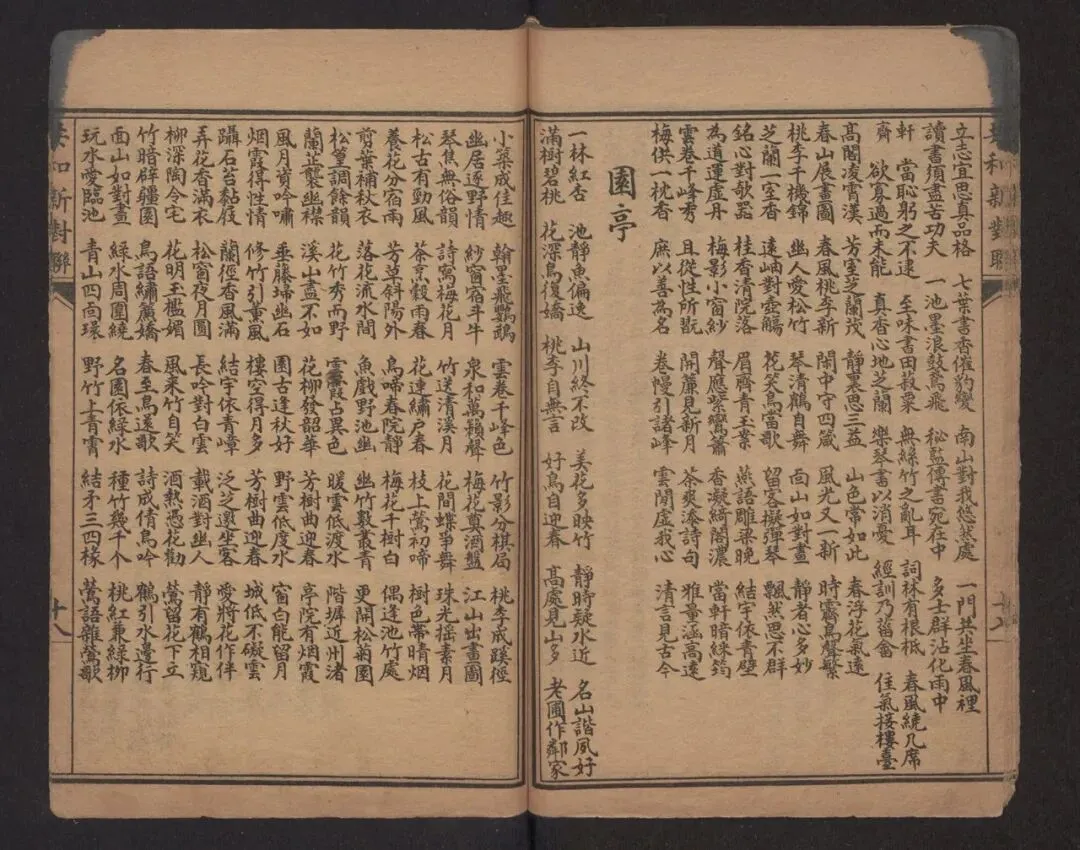 和新對聯
立志宜思真品格 七葉書香催豹變 南山對我悠然處 一門共坐春風裡
讀書須盡苦功夫 一池墨浪鼓鳶飛 秘監傳書宛在中 多士群沾化雨中
軒 當恥躬之不逮 至味書田菽粟 無絲竹之亂耳 詞林有根柢 春風繞几席
齋 欲寡過而未能 真香心地芝蘭 樂琴書以消憂 經訓乃菑畬 佳氣接樓臺
高閣凌霄漢 芳室芝蘭茂 靜裏思三益 山色常如此 春浮花氣遠
春山展畫圖 春風桃李新 閑中守四箴 風光又一新 時霽鳥聲繁
桃李千機錦 幽人愛松竹 琴清鶴自舞 向山如對畫 靜者心多妙
芝蘭一室香 遠岫對壺觴 花笑鳥當歌 留客擬彈琴 飄然思不群
銘心對欹器 桂香清院落 眉齊青玉案 燕語雕梁晚 結宇依青壁
為道運虛丹 梅影小窗紗 聲應紫鸞簫 香凝綺閣濃 當軒暗綠筠
雲卷千峰秀 且從性所翫 開簾見新月 茶爽添詩句 雅量涵高遠
梅供一枕香 庶以善為名 卷幔引諸峰 雲閒虛我心 清言見古今
園亭
一林紅杏 池靜魚偏逸 山川終不改 美花多映竹 靜時疑水近 名山諧夙好
滿樹碧桃 花深鳥復嬌 桃李自無言 好鳥自迎春 高處見山多 老圃作鄰家
小築成佳趣 翰墨飛鸚鵡 雲卷千峰色 竹影分棋局 桃李成蹊徑
幽居逐野情 紗窗宿斗牛 泉和萬籟聲 梅花奠酒盤 江山出畫圖
琴焦無俗韻 詩寫梅花月 竹送清溪月 花間蝶爭舞 珠光搖素月
松古有勁風 茶烹穀雨春 花連繡戶春 枝上鶯初啼 樹色帶晴烟
養花分宿雨 芳草斜陽外 鳥啼春院靜 梅花千樹白 偶逢池竹處
剪葉補秋衣 落花流水間 魚戲野池幽 幽竹數叢青 更開松菊園
松篁調餘韻 花竹秀而野 雲霞占異色 暖雲低渡水 階墀近州渚
蘭芷襲幽襟 溪山盡不如 花柳發韶華 芳樹曲迎春 亭院有烟霞
風月資吟嘯 垂藤掃幽石 園古逢秋好 野雲低度水 窗白能留月
烟霞得性情 修竹引薰風 樓空得月多 芳樹曲迎春 城低不礙雲
躡石苔黏屐 蘭徑香風滿 結宇依青嶂 泛芝邀坐客 愛將花作伴
弄花香滿衣 松窗夜月圓 長吟對白雲 載酒對幽人 靜有鶴相窺
柳深陶令宅 花明玉檻媚 風來竹自笑 酒熟憑花勸 鶯留花下立
竹暗辟疆園 鳥語繡廣嬌 春至鳥還歌 詩成倩鳥吟 鶴引水邊行
面山如對畫 綠水周圍繞 名園依綠水 種竹幾千个 桃紅兼綠柳
玩水愛臨池 青山四向環 野竹上青霄 結茅三四椽 鶯語雜鶯歌
和新對聯 十八